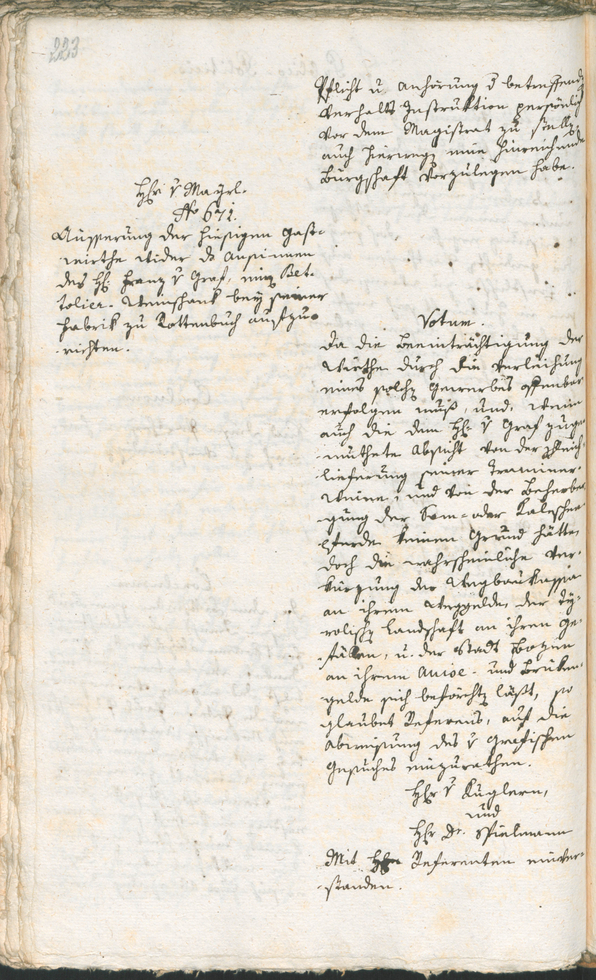 223
Pflicht u. Anhörung d betreffend
Verhalts Instruktion persönlich
vor dem Magistrat zu stelle,
auch hierwegen eine hinreichende
Bürgschaft vorzulegen habe.
Hhr. v Mayrl.
No 671.
Äusserung der hiesigen Gast-
wirthe wider das Ansinnen
des H. Franz v Graf, eine Bet-
tolier. Weinschank bey seiner
Fabrik zu Rottenbuch aufzu-
richten.
Votum
Da die Beeinträchtigung der
Wirthe durch die Verleihung
eines solchen Gewerbes offenbar
erfolgen muß, und, wenn
auch die dem H. v Graf zuge-
muthete Absicht von der
lieferung seiner Traminer-
Weine, und von der Beherber-
gung der Sam- oder Kaleschen
pferde keinen Grund hätte,
doch die wahrscheinliche Ver-
kürzung der Wegbaukassa
an ihrem Weggelde, der ty-
rolischen Landschaft an ihren Ge-
fällen, u. der Stadt Bozen
an ihrem und Brüken-
gelde sich beförchten läßt, so
glaubet Referens, auf die
Abweisung des v Grafischen
Gesuches einzurathen.
Hhr v Kuglern,
und
Hhr Dr. Spielmann
Mit Hhn Referenten einver-
standen.